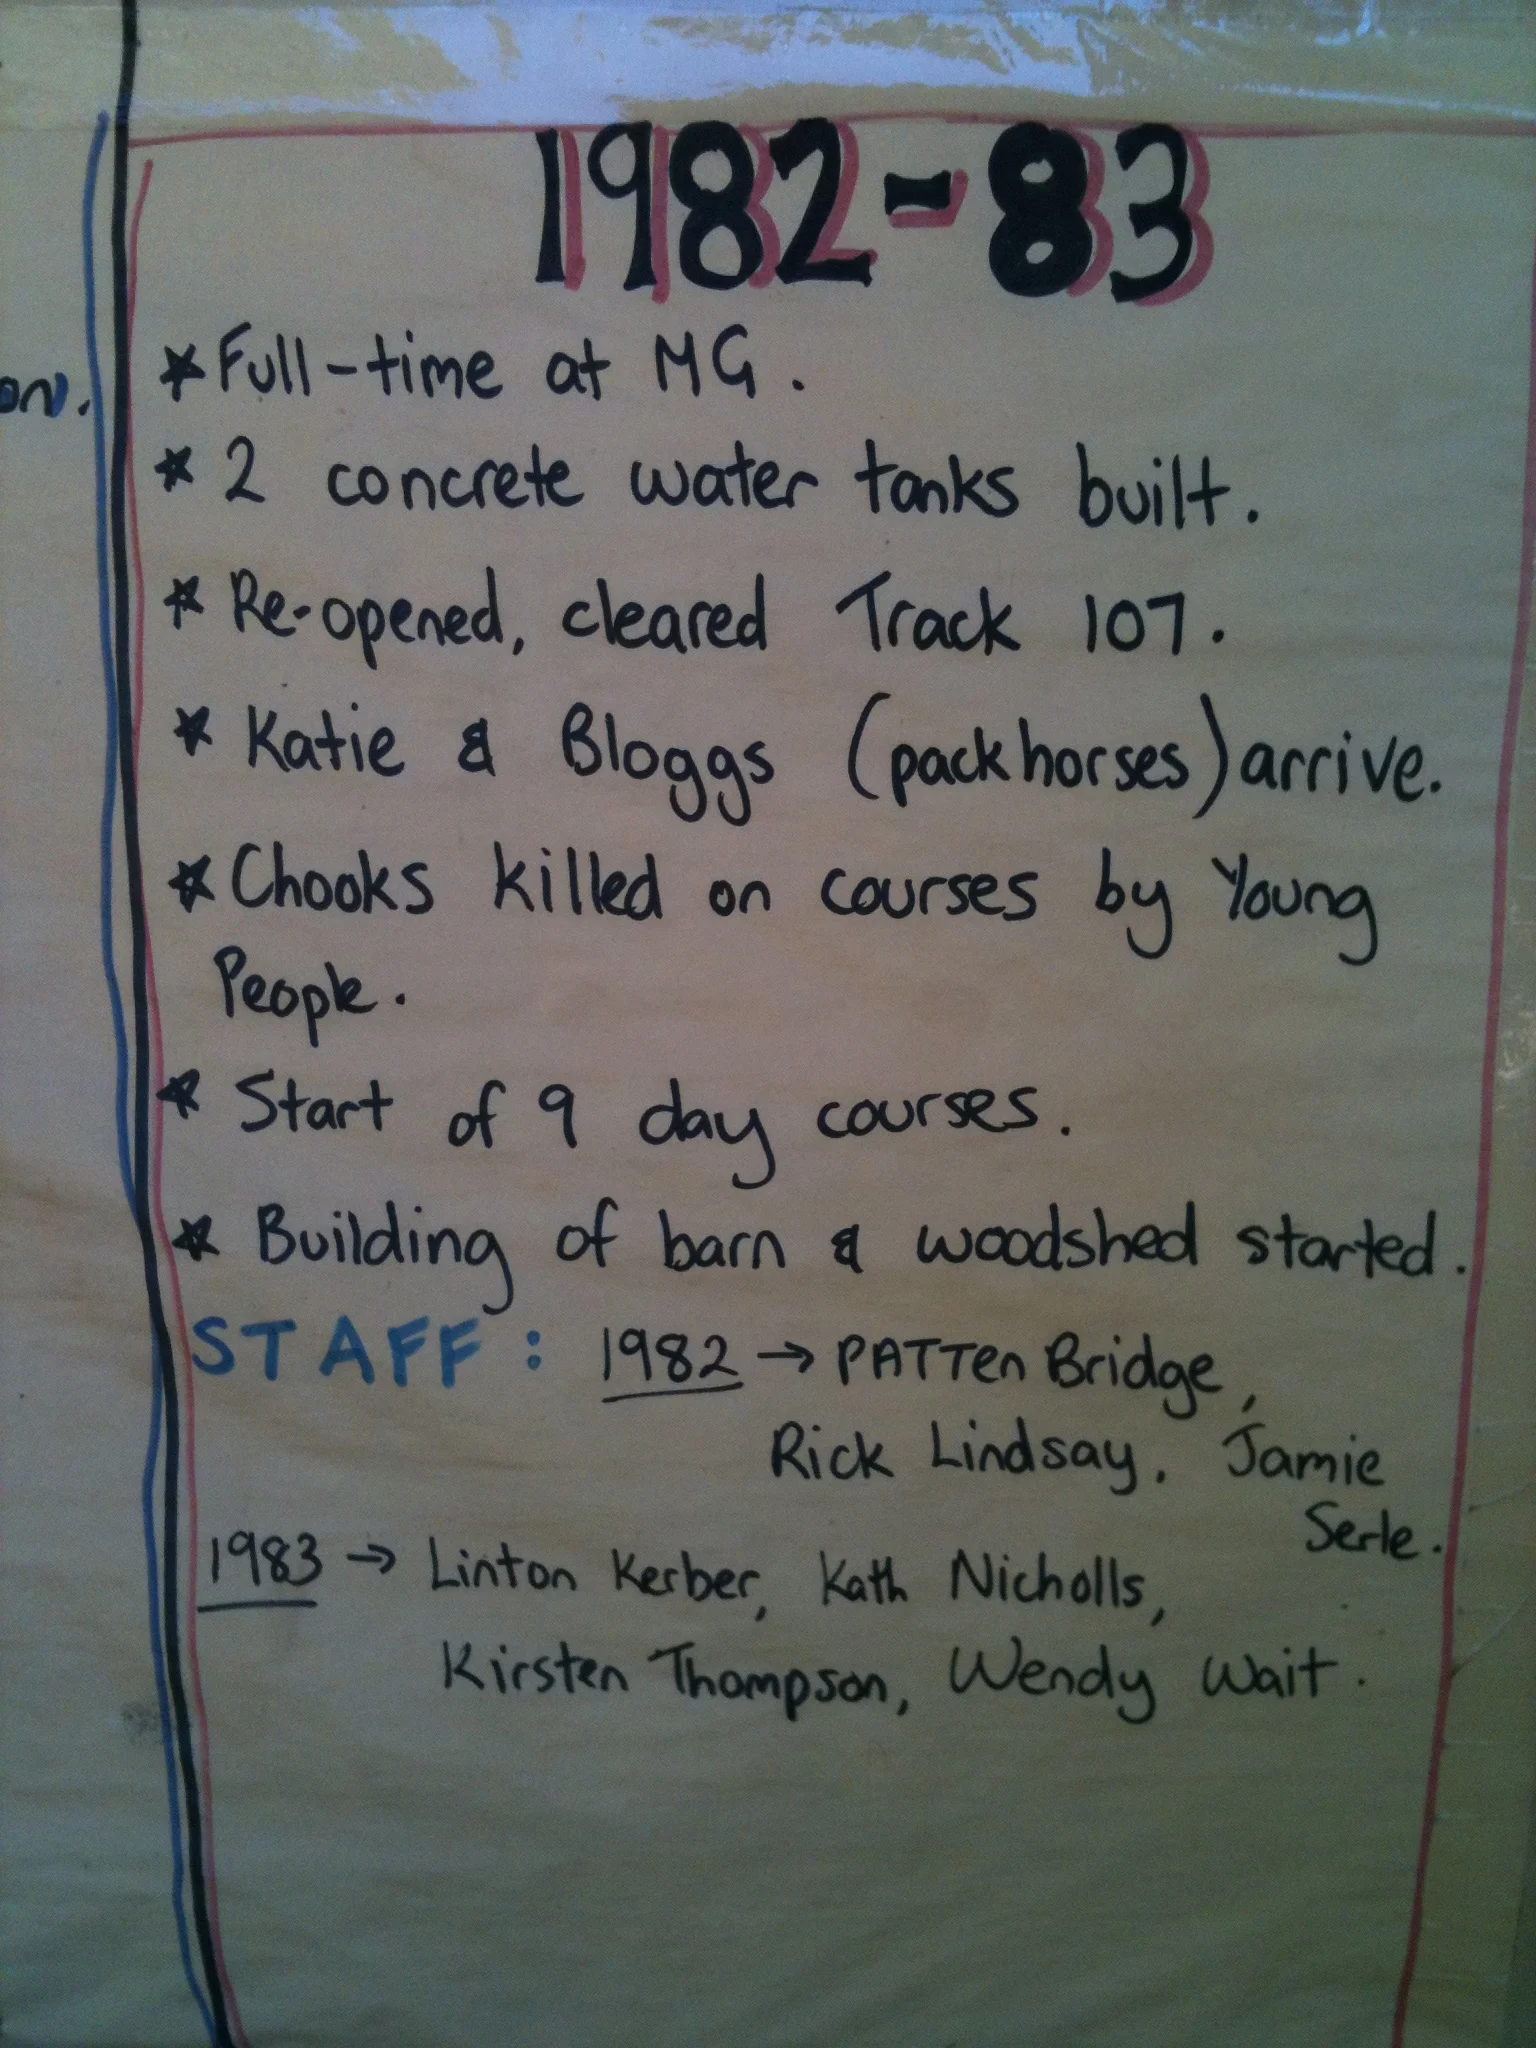 1982-83
on.
* Full-time at MG.
* 2 concrete water tanks built.
* Re-opened, cleared Track 107.
* Katie & Bloggs (packhorses) arrive.
* Chooks killed on courses by Young
People.
* Start of 9 day courses.
* Building of barn & woodshed started.
STAFF: 1982 → PATTen Bridge,
Rick Lindsay, Jamie
Serle.
1983 → Linton Kerber, Kath Nicholls,
Kirsten Thompson, Wendy Wait.